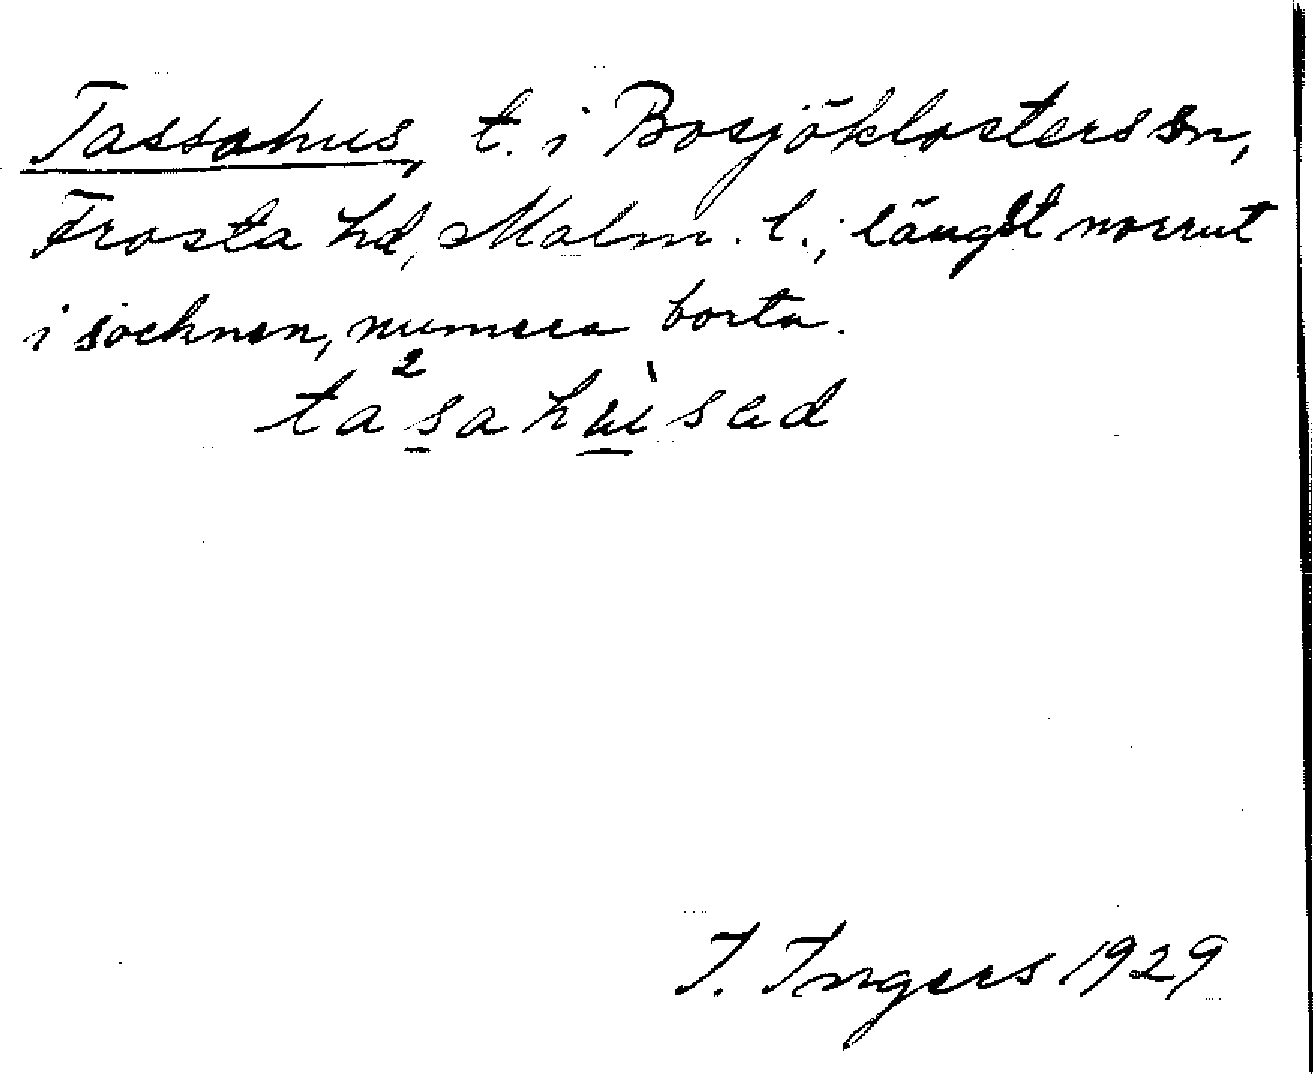 Tassahus, t. i Bosjöklosters sn,
Frosta hd, Malm. l., längst norrut
i socknen, numera borta.
ta²sahùsad
I. Ingers 1929